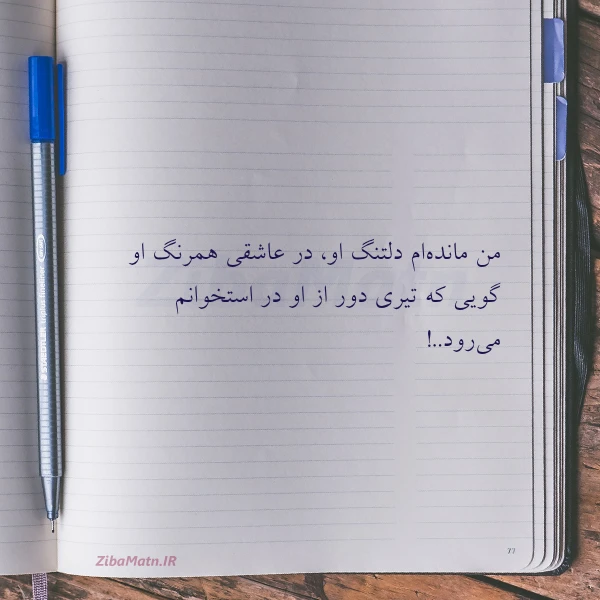 من مانده‌ام دلتنگ او، در عاشقی همرنگ او
گویی که تیری دور از او در استخوانم
می‌رود..!
ZibaMatn.IR